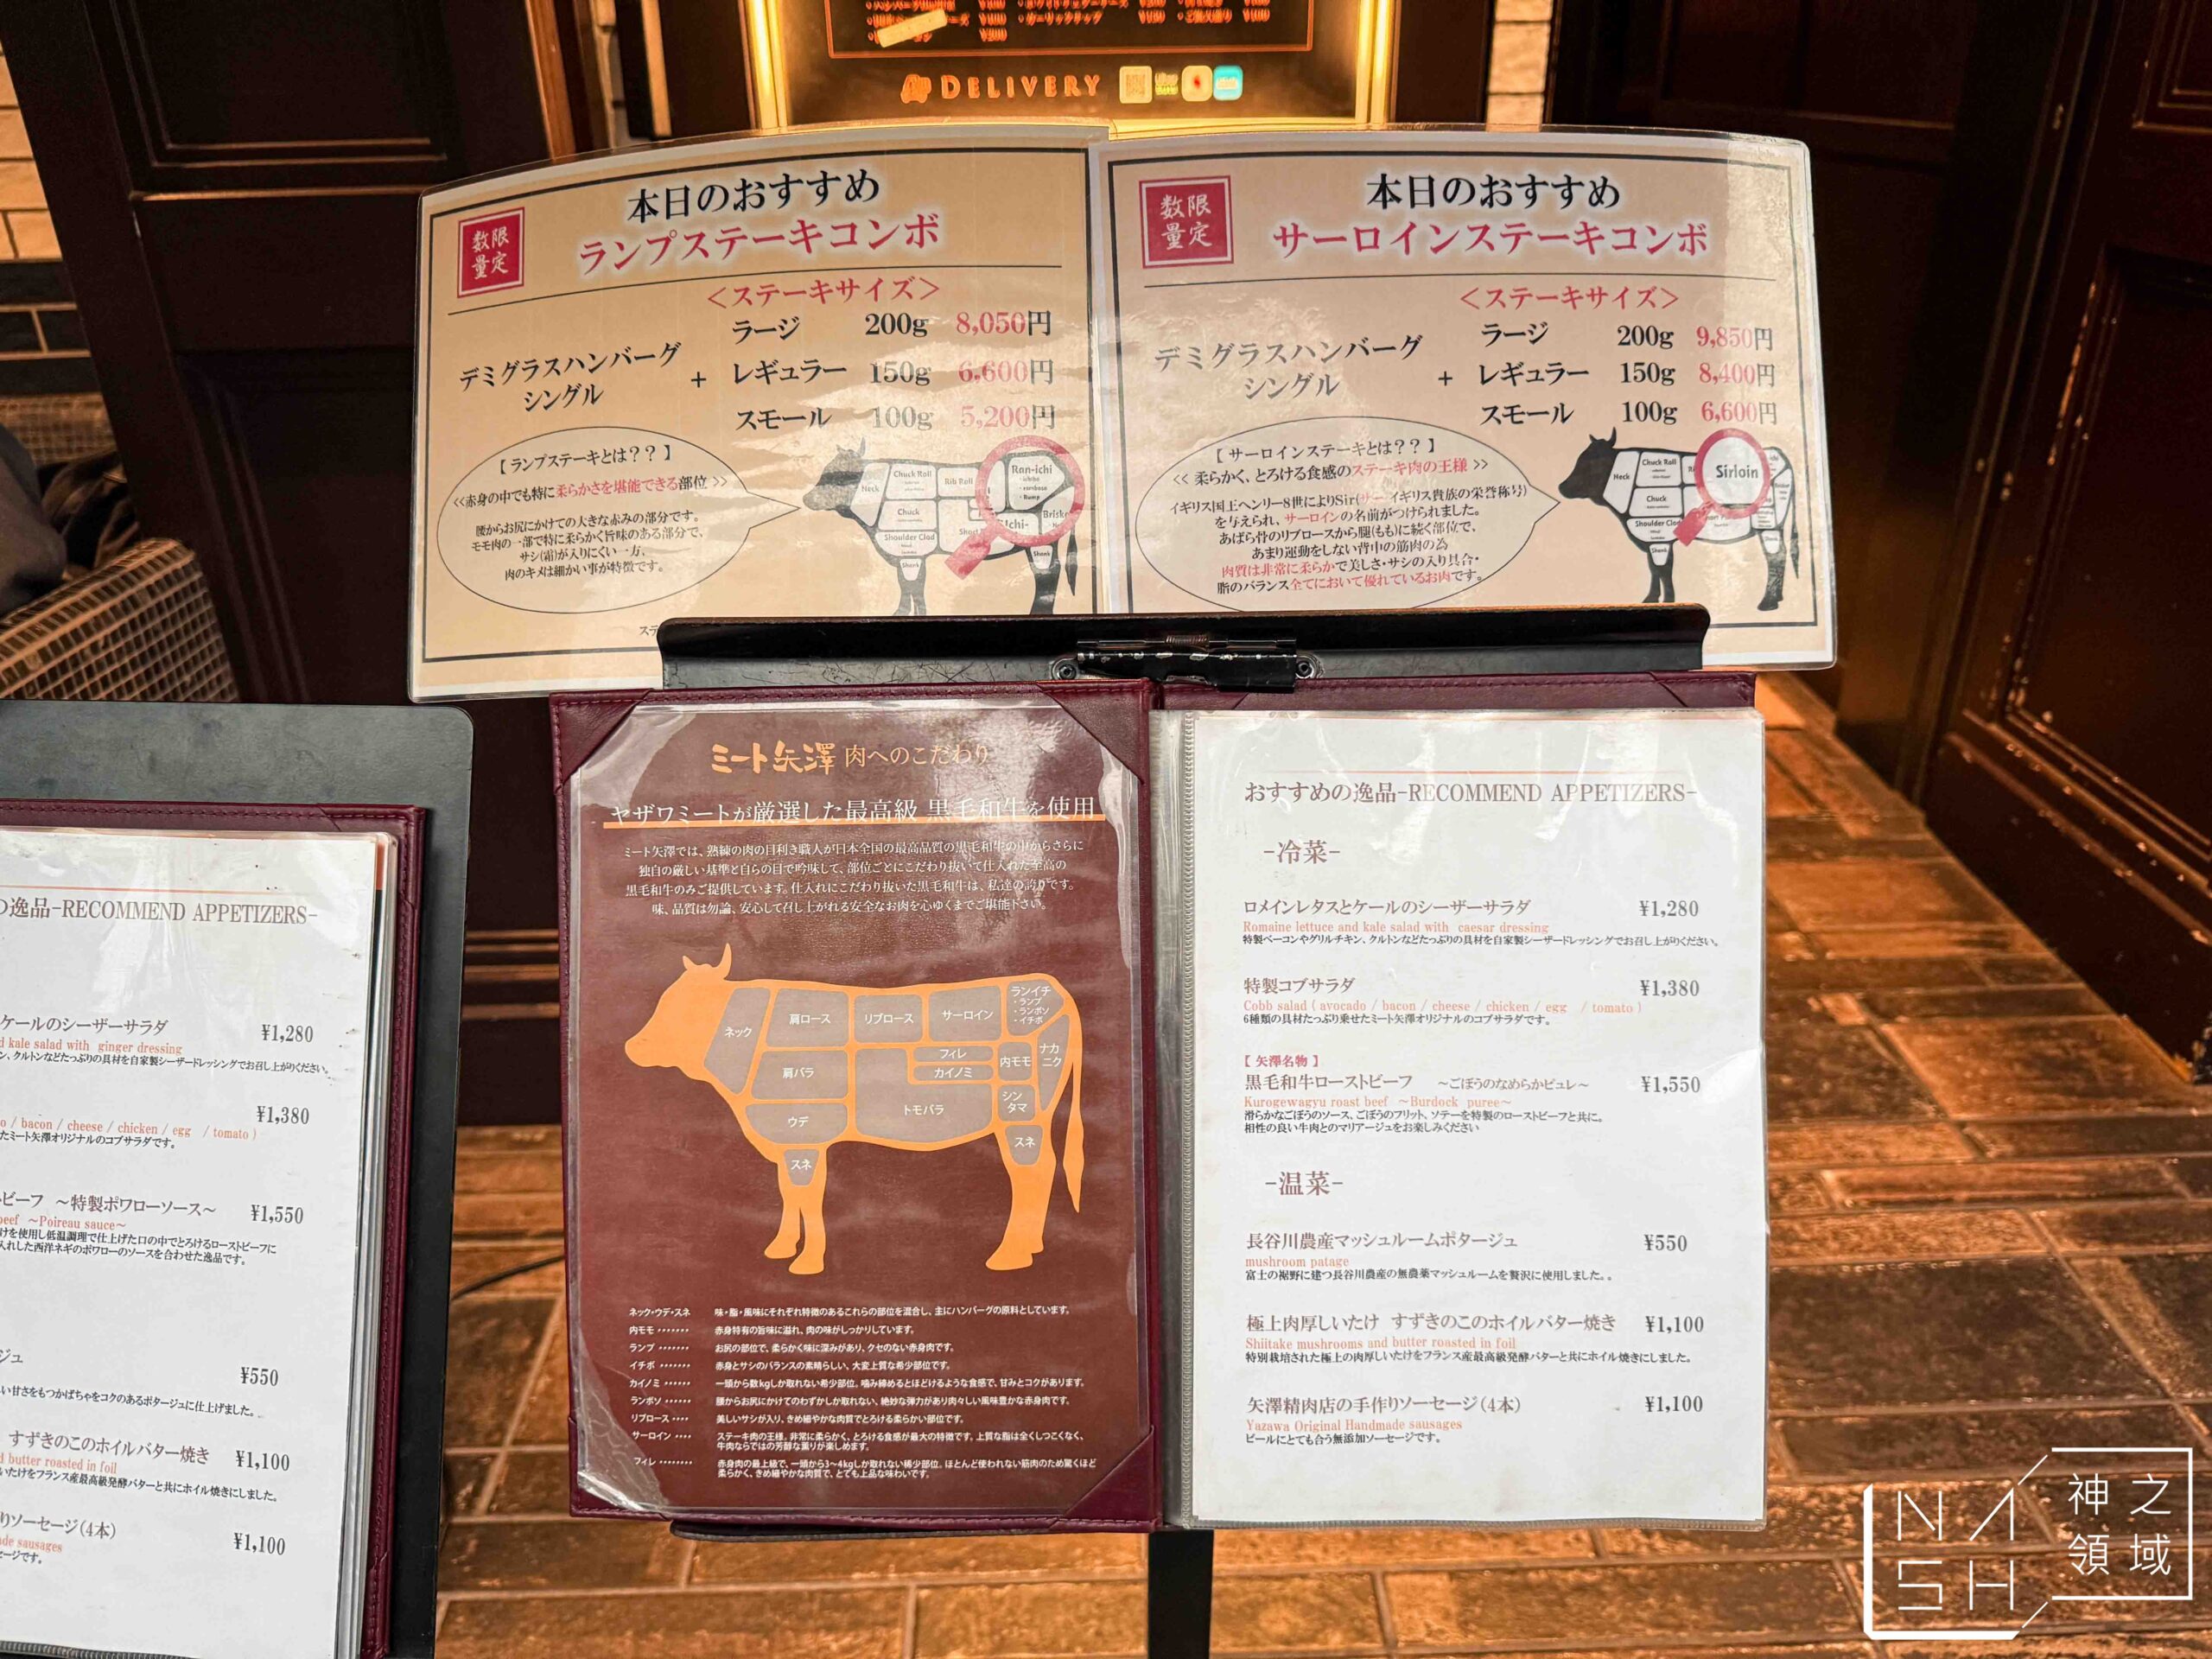 DELIVERY
数限
量定
本日のおすすめ
ランプステーキコンボ
<ステーキサイズ>
デミグラスハンバーグ
シングル
+
ラージ 200g 8,050円
レギュラー 150g 6,600円
スモール 100g 5,200円
【ランプステーキとは??】
<<赤身の中でも特に柔らかさを堪能できる部位>>
腰からお尻にかけての大きな赤みの部分です。
モモ肉の一部で特に柔らかく旨味のある部分で、
サシ(霜)が入りにくい一方、
肉のキメは細かい事が特徴です。
Neck
Chuck Roll
Rib Roll
Ran-ichi
Chuck
Shoulder Clod
Shank
Shank
数限
量定
本日のおすすめ
サーロインステーキコンボ
<ステーキサイズ>
デミグラスハンバーグ
シングル
+
ラージ 200g 9,850円
レギュラー 150g 8,400円
スモール 100g 6,600円
【サーロインステーキとは??】
<<柔らかく、とろける食感のステーキ肉の王様>>
イギリス国王ヘンリー8世によりSir(サー イギリス貴族の栄誉称号)
を与えられ、サーロインの名前がつけられました。
あばら骨のリブロースから腿(もも)に続く部位で、
あまり運動をしない背中の筋肉の為
肉質は非常に柔らかで美しさ・サシの入り具合・
脂のバランス全てにおいて優れているお肉です。
Neck
Chuck Roll
Sirloin
Chuck
Shoulder Clod
Shank
Shank
ミート矢澤 肉へのこだわり
ヤザワミートが厳選した最高級 黒毛和牛を使用
ミート矢澤では、熟練の肉の目利き職人が日本全国の最高品質の黒毛和牛の中からさらに
独自の厳しい基準と自らの目で吟味して、部位ごとにこだわり抜いて仕入れた至高の
黒毛和牛のみご提供しています。仕入れにこだわり抜いた黒毛和牛は、私達の誇りです。
味、品質は勿論、安心して召し上がれる安全なお肉を心ゆくまでご堪能下さい。
ネック
肩ロース
リブロース
サーロイン
ランイチ
・ランプ
・ランボソ
・イチボ
肩バラ
フィレ
カイノミ
内モモ
ナカ
ニク
ウデ
トモバラ
シン
タマ
スネ
スネ
ネック・ウデ・スネ 味・脂・風味にそれぞれ特徴のあるこれらの部位を混合し、主にハンバーグの原料としています。
内モモ ・・・・・・・ 赤身特有の旨味に溢れ、肉の味がしっかりしています。
ランプ ・・・・・・・ お尻の部位で、柔らかく味に深みがあり、クセのない赤身肉です。
イチボ ・・・・・・・ 赤身とサシのバランスの素晴らしい、大変上質な希少部位です。
カイノミ ・・・・・・ 一頭から数kgしか取れない希少部位。噛み締めるとほどけるような食感で、甘みとコクがあります。
ランボソ ・・・・・・ 腰からお尻にかけてのわずかしか取れない、絶妙な弾力があり肉々しい風味豊かな赤身肉です。
リブロース ・・・・ 美しいサシが入り、きめ細やかな肉質でとろける柔らかい部位です。
サーロイン ・・・・ ステーキ肉の王様。非常に柔らかく、とろける食感が最大の特徴です。上質な脂は全くしつこくなく、
牛肉ならではの芳醇な薫りが楽しめます。
フィレ ・・・・・・・・ 赤身肉の最上級で、一頭から3～4kgしか取れない稀少部位。ほとんど使われない筋肉のため驚くほど
柔らかく、きめ細やかな肉質で、とても上品な味わいです。
おすすめの逸品-RECOMMEND APPETIZERS-
-冷菜-
ロメインレタスとケールのシーザーサラダ ¥1,280
Romaine lettuce and kale salad with caesar dressing
特製ベーコンやグリルチキン、クルトンなどたっぷりの具材を自家製シーザードレッシングでお召し上がりください。
特製コブサラダ ¥1,380
Cobb salad ( avocado / bacon / cheese / chicken / egg / tomato )
6種類の具材たっぷり乗せたミート矢澤オリジナルのコブサラダです。
【 矢澤名物 】
黒毛和牛ローストビーフ ～ごぼうのなめらかピュレ～ ¥1,550
Kurogewagyu roast beef ～Burdock puree～
滑らかなごぼうのソース、ごぼうのフリット、ソテーを特製のローストビーフと共に。
相性の良い牛肉とのマリアージュをお楽しみください
-温菜-
長谷川農産マッシュルームポタージュ ¥550
mushroom patage
富士の裾野に建つ長谷川農産の無農薬マッシュルームを贅沢に使用しました。。
極上肉厚しいたけ すずきのこのホイルバター焼き ¥1,100
Shiitake mushrooms and butter roasted in foil
特別栽培された極上の肉厚しいたけをフランス産最高級発酵バターと共にホイル焼きにしました。
矢澤精肉店の手作りソーセージ(4本) ¥1,100
Yazawa Original Handmade sausages
ビールにとても合う無添加ソーセージです。
の逸品-RECOMMEND APPETIZERS-
ケールのシーザーサラダ ¥1,280
d kale salad with ginger dressing
ン、クルトンなどたっぷりの具材を自家製シーザードレッシングでお召し上がりください。
¥1,380
o / bacon / cheese / chicken / egg / tomato )
たミート矢澤オリジナルのコブサラダです。
ビーフ ～特製ポワローソース～ ¥1,550
beef ～Poireau sauce～
けを使用し低温調理で仕上げた口の中でとろけるローストビーフに
入れした西洋ネギのポワローのソースを合わせた逸品です。
ジュ ¥550
い甘さをもつかぼちゃをコクのあるポタージュに仕上げました。
すずきのこのホイルバター焼き ¥1,100
d butter roasted in foil
いたけをフランス産最高級発酵バターと共にホイル焼きにしました。
りソーセージ(4本) ¥1,100
ade sausages
ージです。
NASH
神之
領域